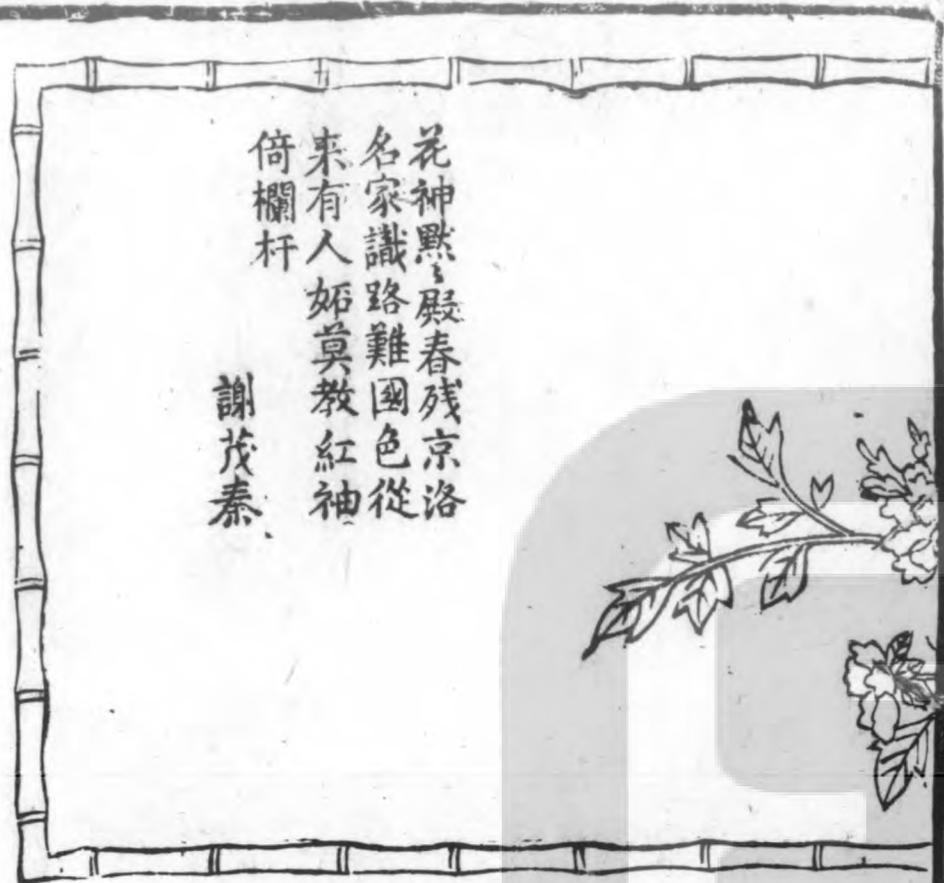 花神黙〻殿春残京洛
名家識路難國色從
来有人妬莫教紅袖
倚欄杆
謝茂秦